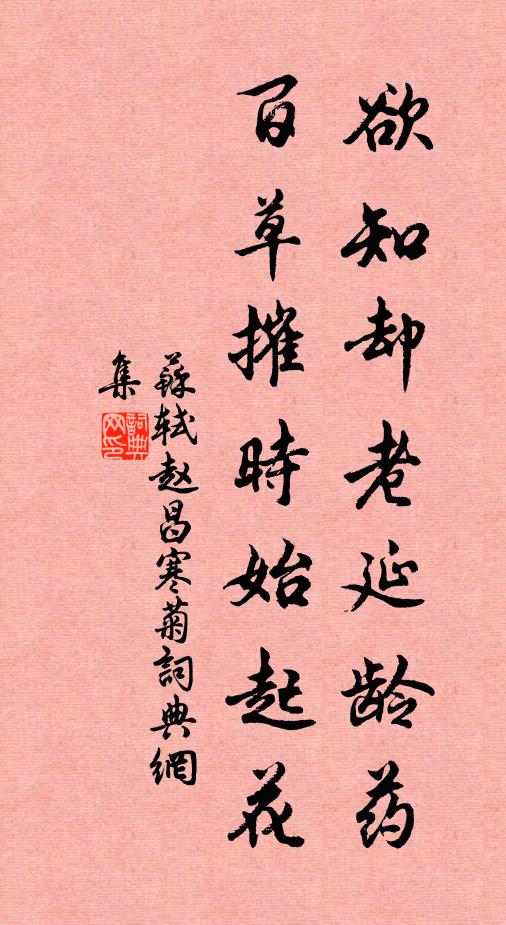 欲知却老延龄药
百草摧時始起花
蘇轼赵昌寒菊詞典網
集
詞典网印